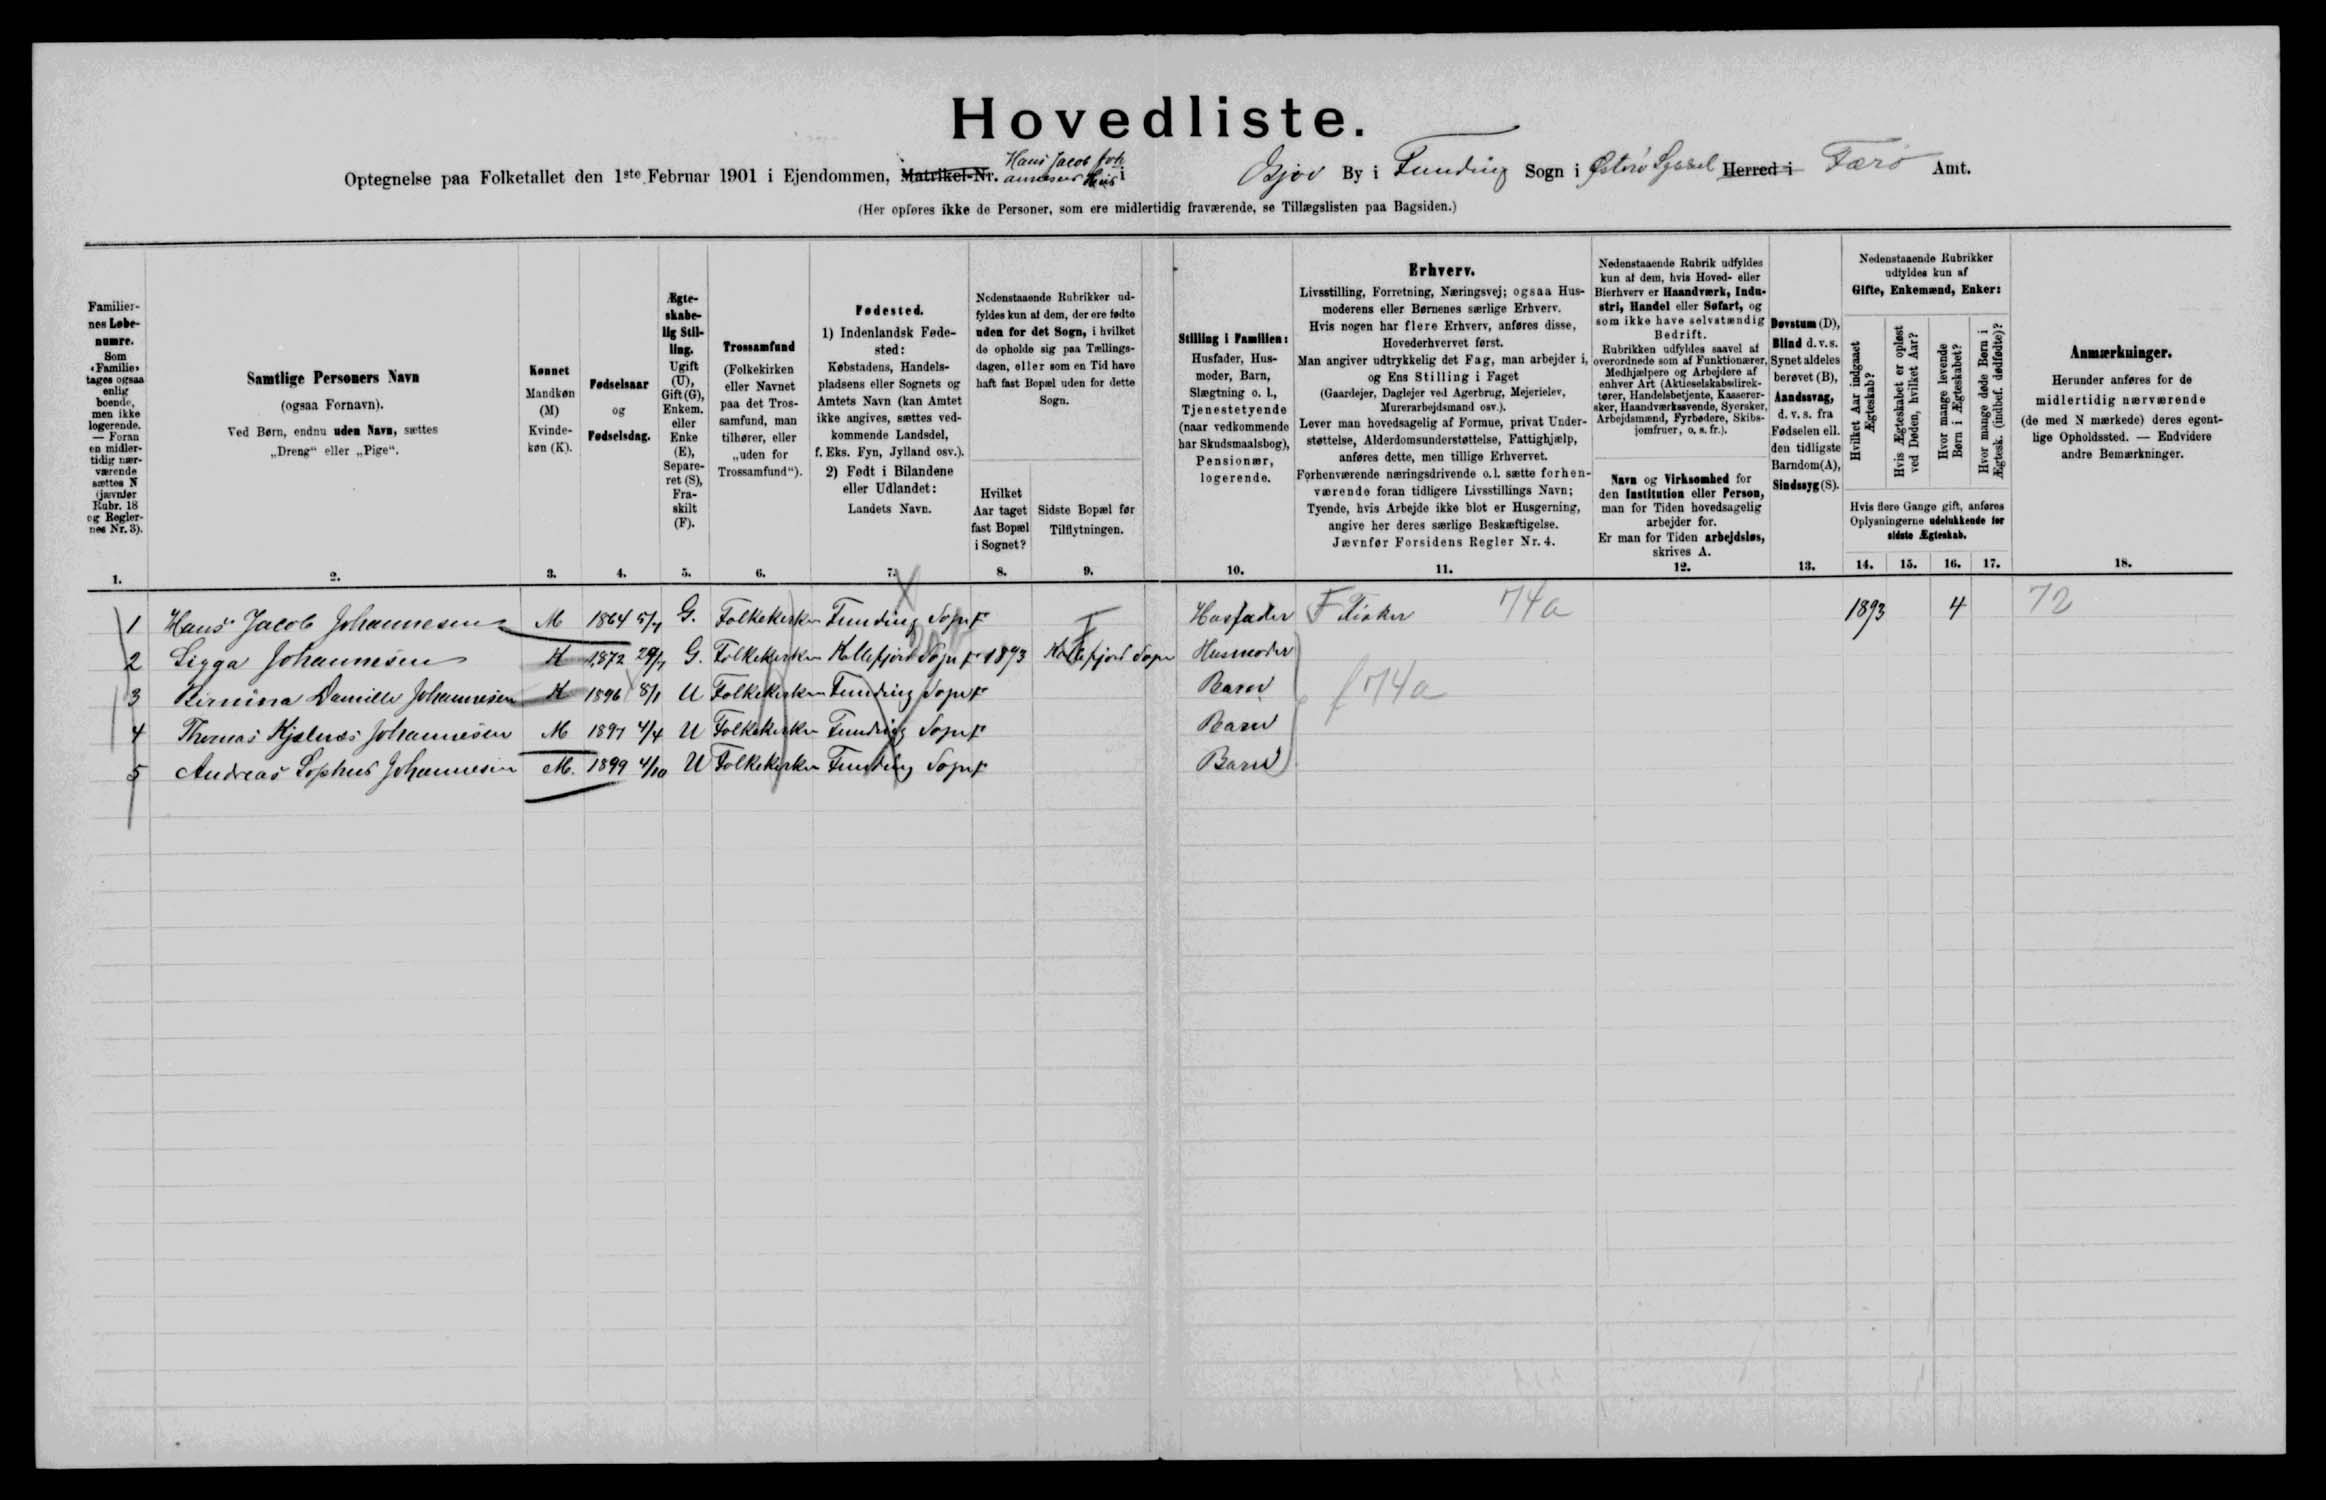 Hovedliste.
Optegnelse paa Folketallet den 1ste Februar 1901 i Ejendommen, Matrikel-Nr. Hans Jacob Joh
annesens Hus i Gjov By i Funding Sogn i Østerø Syssel Herred i Færø Amt.
(Her opføres ikke de Personer, som ere midlertidig fraværende, se Tillægslisten paa Bagsiden.)
Familier-
nes Løbe-
numre.
Som
«Familie»
tages ogsaa
enlig
boende,
men ikke
logerende.
— Foran
en midler-
tidig nær-
værende
sættes N
(jævnfør
Rubr. 18
og Regler-
nes Nr. 3).
1.
Samtlige Personers Navn
(ogsaa Fornavn).
Ved Børn, endnu uden Navn, sættes
„Dreng“ eller „Pige“.
2.
Kønnet
Mandkøn
(M)
Kvinde-
køn (K).
3.
Fødselsaar
og
Fødselsdag.
4.
Ægte-
skabe-
lig Stil-
ling.
Ugift
(U),
Gift (G),
Enkem.
eller
Enke
(E),
Separe-
ret (S),
Fra-
skilt
(F).
5.
Trossamfund
(Folkekirken
eller Navnet
paa det Tros-
samfund, man
tilhører, eller
„uden for
Trossamfund“).
6.
Fødested.
1) Indenlandsk Føde-
sted:
Købstadens, Handels-
pladsens eller Sognets og
Amtets Navn (kan Amtet
ikke angives, sættes ved-
kommende Landsdel,
f. Eks. Fyn, Jylland osv.).
2) Født i Bilandene
eller Udlandet:
Landets Navn.
7.
Nedenstaaende Rubrikker ud-
fyldes kun af dem, der ere fødte
uden for det Sogn, i hvilket
de opholde sig paa Tællings-
dagen, eller som en Tid have
haft fast Bopæl uden for dette
Sogn.
Hvilket
Aar taget
fast Bopæl
i Sognet?
8.
Sidste Bopæl før
Tilflytningen.
9.
Stilling i Familien:
Husfader, Hus-
moder, Barn,
Slægtning o. l.,
Tjenestetyende
(naar vedkommende
har Skudsmaalsbog),
Pensionær,
logerende.
10.
Erhverv.
Livsstilling, Forretning, Næringsvej; ogsaa Hus-
moderens eller Børnenes særlige Erhverv.
Hvis nogen har flere Erhverv, anføres disse,
Hovederhvervet først.
Man angiver udtrykkelig det Fag, man arbejder i,
og Ens Stilling i Faget
(Gaardejer, Daglejer ved Agerbrug, Mejerielev,
Murerarbejdsmand osv.).
Lever man hovedsagelig af Formue, privat Under-
støttelse, Alderdomsunderstøttelse, Fattighjælp,
anføres dette, men tillige Erhvervet.
Forhenværende næringsdrivende o. l. sætte forhen-
værende foran tidligere Livsstillings Navn;
Tyende, hvis Arbejde ikke blot er Husgerning,
angive her deres særlige Beskæftigelse.
Jævnfør Forsidens Regler Nr. 4.
11.
Nedenstaaende Rubrik udfyldes
kun af dem, hvis Hoved- eller
Bierhverv er Haandværk, Indu-
stri, Handel eller Søfart, og
som ikke have selvstændig
Bedrift.
Rubrikken udfyldes saavel af
overordnede som af Funktionærer,
Medhjælpere og Arbejdere af
enhver Art (Aktieselskabsdirek-
tører, Handelsbetjente, Kasserer-
sker, Haandværkssvende, Syersker,
Arbejdsmænd, Fyrbødere, Skibs-
jomfruer, o. s. fr.).
Navn og Virksomhed for
den Institution eller Person,
man for Tiden hovedsagelig
arbejder for.
Er man for Tiden arbejdsløs,
skrives A.
12.
Døvstum (D),
Blind d. v. s.
Synet aldeles
berøvet (B),
Aandssvag,
d. v. s. fra
Fødselen ell.
den tidligste
Barndom (A),
Sindssyg (S).
13.
Nedenstaaende Rubrikker
udfyldes kun af
Gifte, Enkemænd, Enker:
Hvilket Aar indgaaet
Ægteskab?
Hvis Ægteskabet er opløst
ved Døden, hvilket Aar?
Hvor mange levende
Børn i Ægteskabet?
Hvor mange døde Børn i
Ægtesk. (indbef. dødfødte)?
Hvis flere Gange gift, anføres
Oplysningerne udelukkende for
sidste Ægteskab.
14. 15. 16. 17.
Anmærkninger.
Herunder anføres for de
midlertidig nærværende
(de med N mærkede) deres egent-
lige Opholdssted. — Endvidere
andre Bemærkninger.
18.
1 Hans Jacob Johannesen M 1864 5/7 G. Folkekirken Funding Sogn Husfader F Fisker 74a 1893 4 72
2 Sigga Johannesen K 1872 29/7 G. Folkekirken Kollefjord Sogn 1893 Kollefjord Sogn Husmoder
3 Birnina Danielle Johannesen K 1896 8/1 U Folkekirken Funding Sogn Barn f 74a
4 Thomas Kjølnæs Johannesen M 1897 4/4 U Folkekirken Funding Sogn Barn
5 Andreas Sophus Johannesen M. 1899 4/10 U Folkekirken Funding Sogn Barn